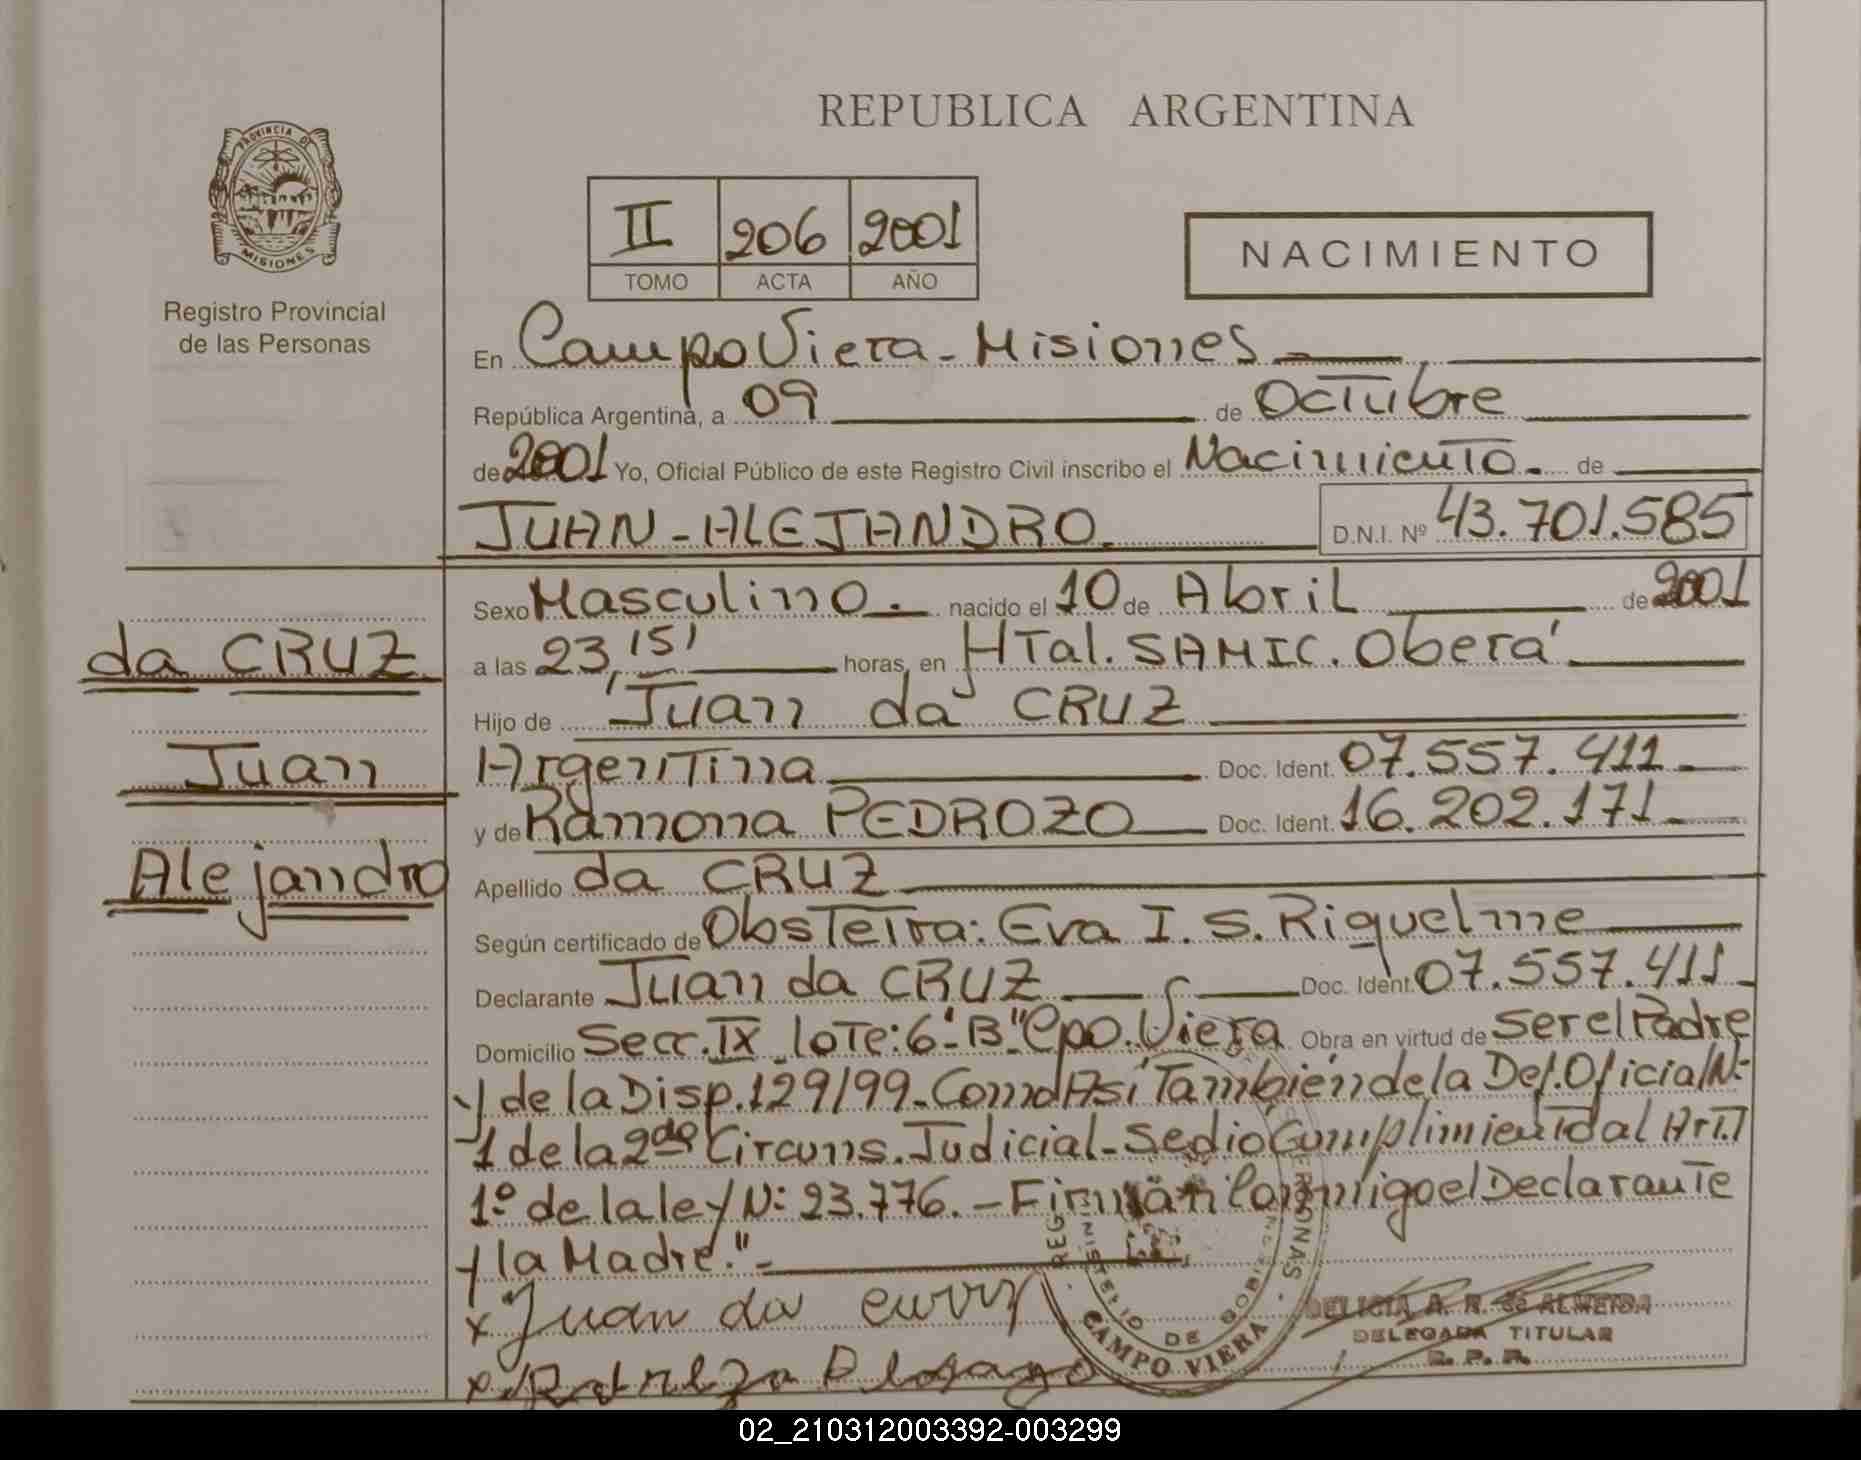 REPUBLICA ARGENTINA
PROVINCIA DE
MISIONES
Registro Provincial
de las Personas
II 206 2001
TOMO ACTA AÑO
NACIMIENTO
En Campo Viera - Misiones
República Argentina, a 09 de Octubre
de 2001 Yo, Oficial Público de este Registro Civil inscribo el Nacimiento. de
JUAN - ALEJANDRO. D.N.I. Nº 43.701.585
da CRUZ
Juan
Alejandro
Sexo Masculino. nacido el 10 de Abril de 2001
a las 23,15' horas, en HTal. SAMIC. Oberá
Hijo de Juan da CRUZ
Argentina Doc. Ident. 07.557.411
y de Ramona PEDROZO Doc. Ident. 16.202.171
Apellido da CRUZ
Según certificado de Obstetra: Eva I. S. Riquelme
Declarante Juan da CRUZ Doc. Ident. 07.557.411
Domicilio Secc. IX lote: 6 "B" Cpo. Viera Obra en virtud de ser el Padre
y de la Disp. 129/99 - Como Así También de la Def. Oficial Nº
1 de la 2da Circuns. Judicial - Se dio Cumplimiento al Art.
1º de la ley Nº 23.776. - Firman Conmigo el Declarante
y la Madre." -
x Juan da
x
MINISTERIO DE GOBI
CAMPO VIERA
DELICIA A. R. de ALMEIDA
DELEGADA TITULAR
R. P. P.
02_210312003392-003299